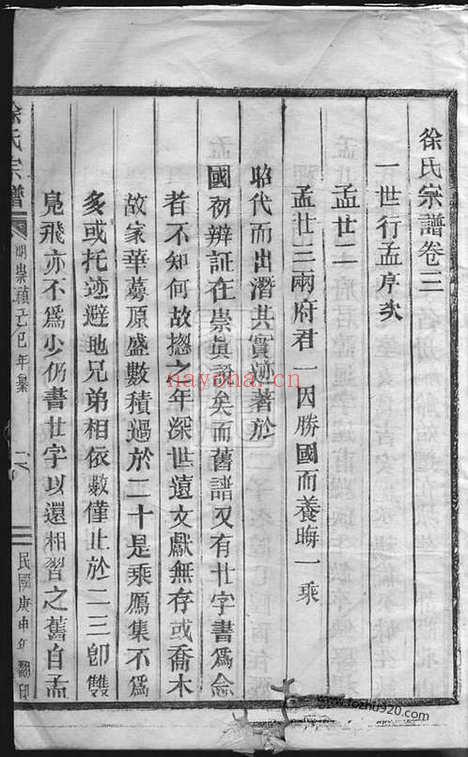 徐氏宗譜卷三
一世行孟序癸
孟廿二
孟廿三兩府君一因勝國而養晦一乘
昭代而出潛其實迹著於
國初辨証在崇眞說矣而舊譜又有廿字書爲念
者不知何故揔之年深世遠文獻無存或喬木
故家華蕚原盛數積過於二十是乘鴈集不爲
多或托迹避地兄弟相依數僅止於二三卽雙
鳬飛亦不爲少仍書廿字以還相習之舊自孟
徐氏宗譜
明崇禎己巳年纂
民國庚申年
nayona.cn
www.fozhu920.com